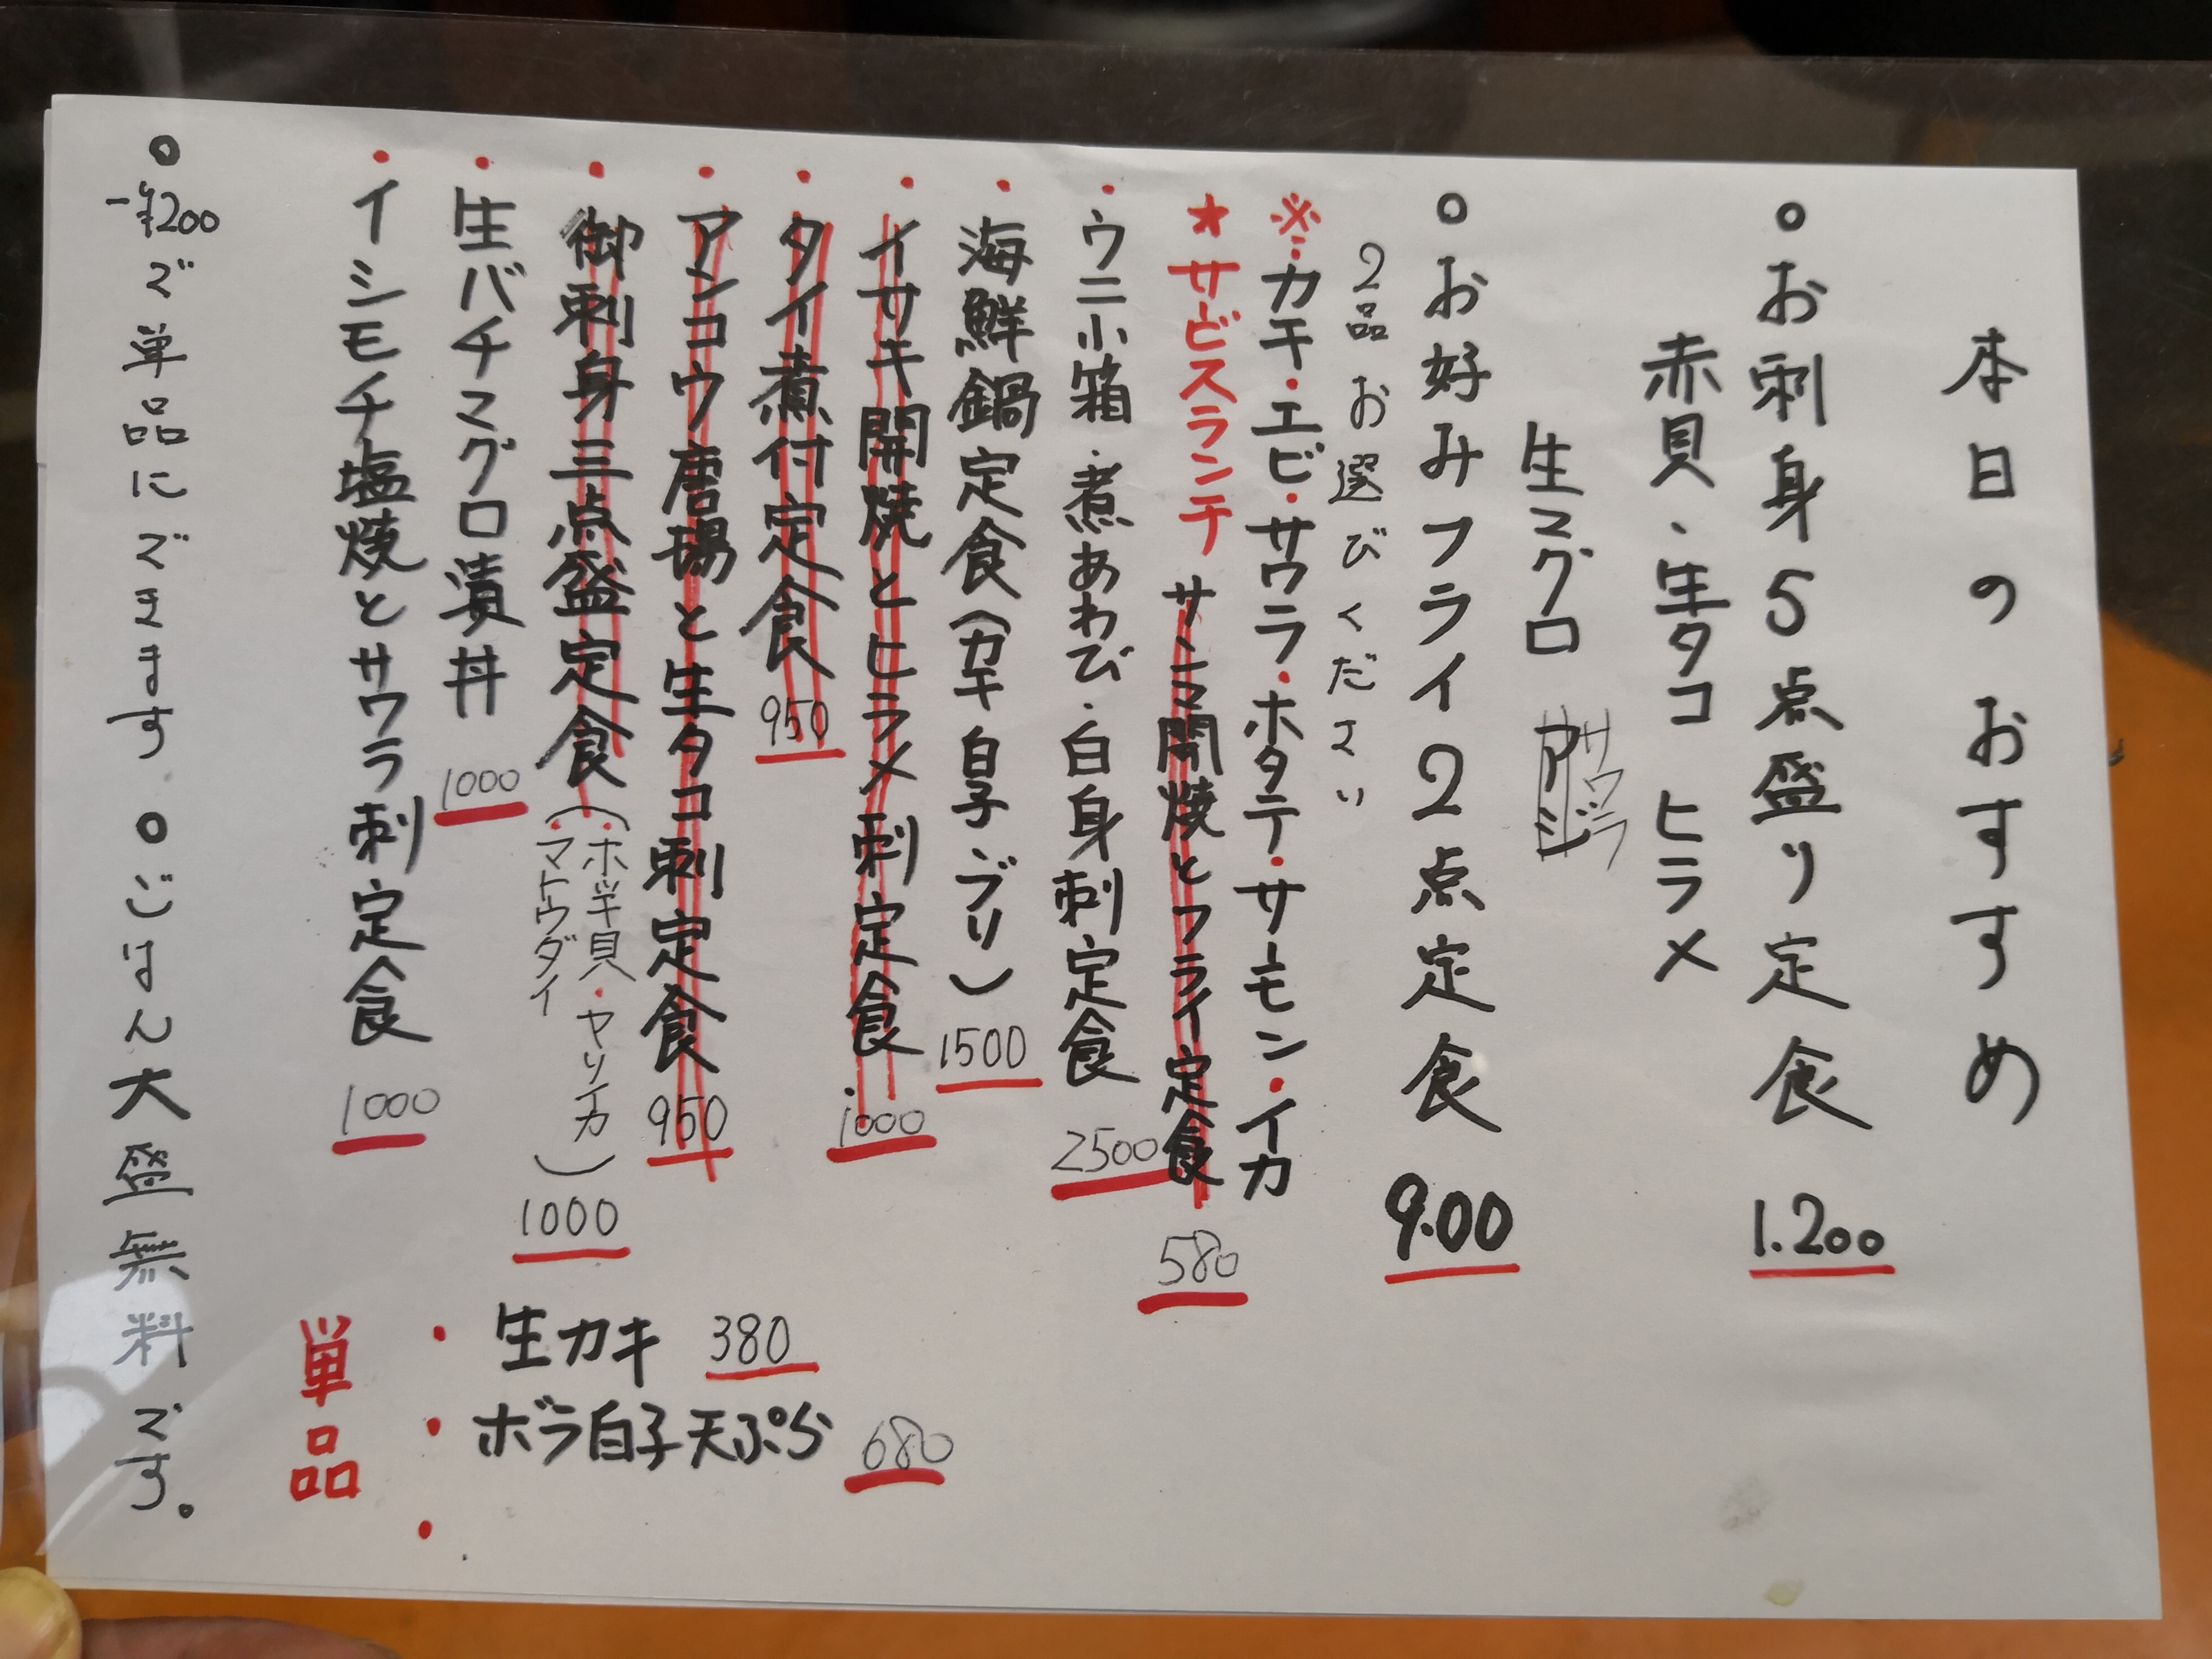 本日のおすすめ
○お刺身5点盛り定食 1.200
赤貝・生タコ ヒラメ
生マグロ アジ
サワラ
○お好みフライ2点定食 9.00
2品お選びください
※カキ・エビ・サワラ・ホタテ・サーモン・イカ
★サービスランチ サンマ開焼とフライ定食 580
・ウニ小箱・煮あわび・白身刺定食 2500
・海鮮鍋定食(カキ 白子・ブリ) 1500
・イサキ開焼とヒラメ刺定食 1000
・タイ煮付定食 950
・アンコウ唐揚と生タコ刺定食 950
・御刺身三点盛定食(・ホッキ貝・ヤリイカ・マトウダイ) 1000
・生バチマグロ漬丼 1000
・イシモチ塩焼とサワラ刺定食 1000
○-¥200で単品にできます ○ごはん大盛無料です。
単品
・生カキ 380
・ボラ白子天ぷら 680
・